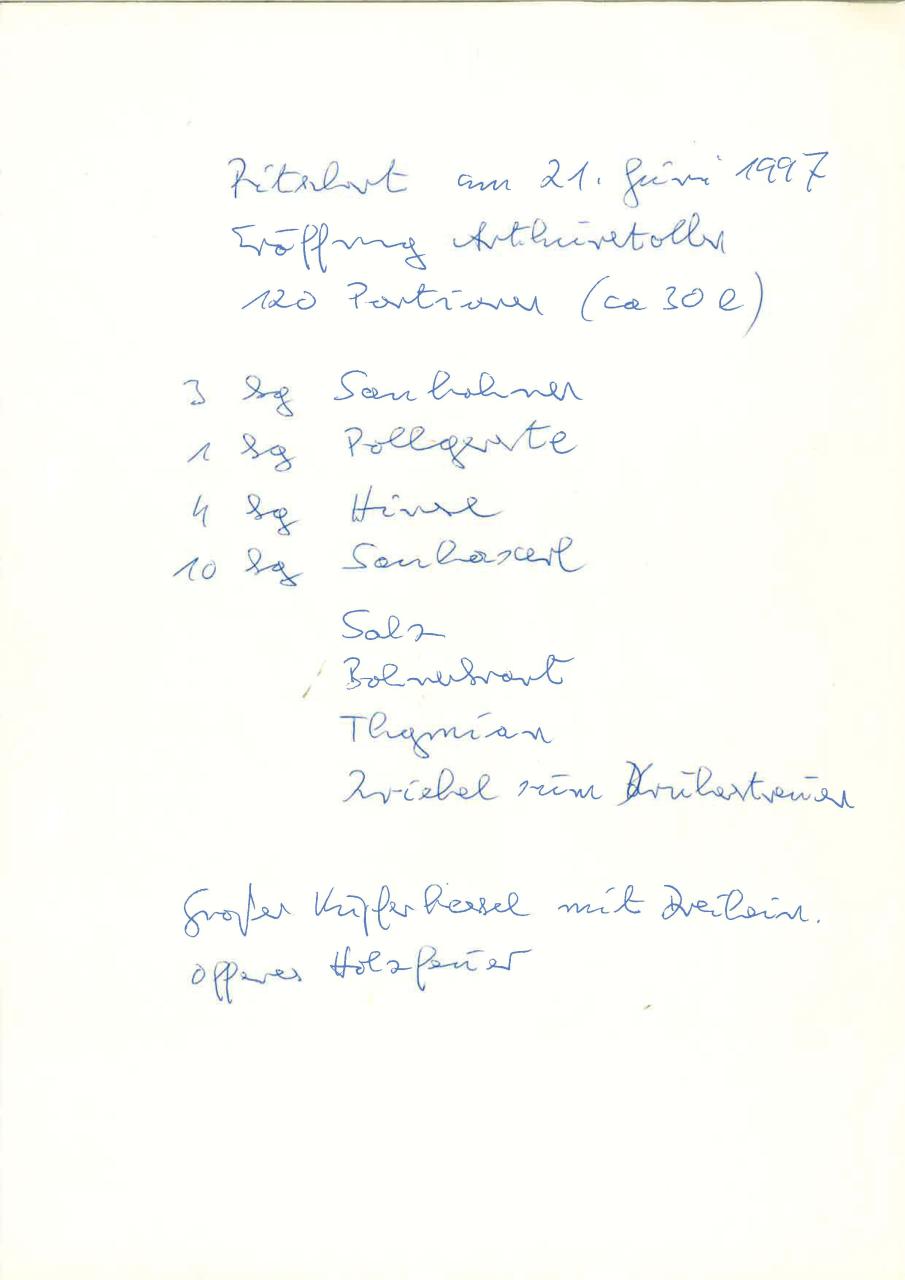 Ritschert am 21. Juni 1997
Eröffnung
120 Portionen (ca 30 l)
3 kg Saubohnen
1 kg Rollgerste
4 kg Hirse
10 kg Sauhaxerl
Salz
Bohnenkraut
Thymian
Zwiebel zum Drüberstreuen
Großer Kupferkessel mit Dreibein.
Offenes Holzfeuer